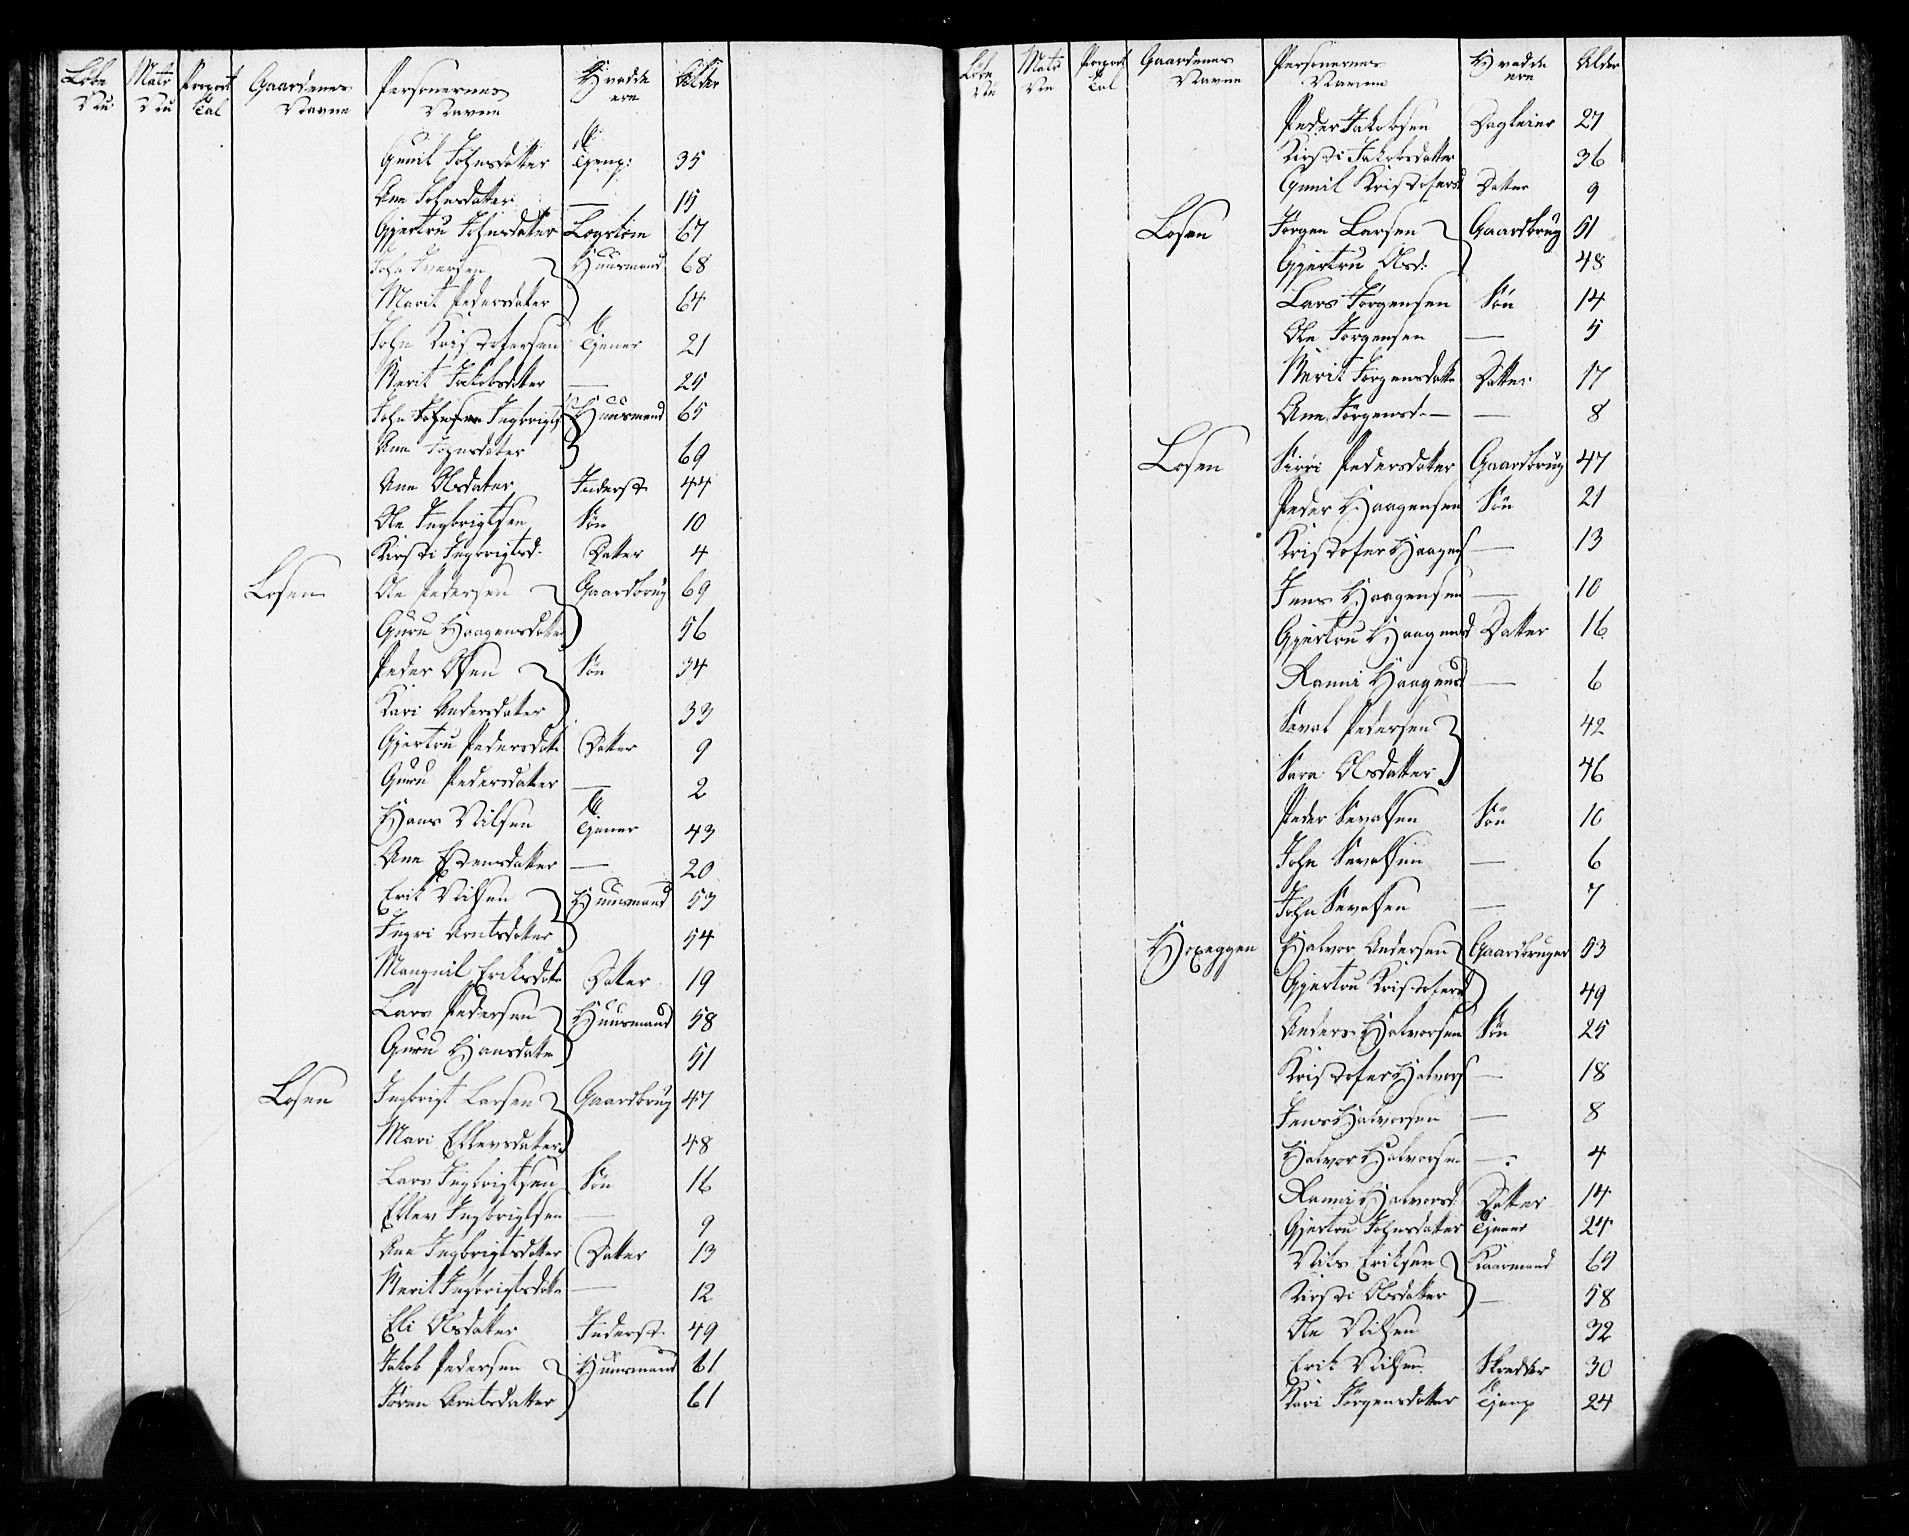 Löbe Nu. Matr Nu Proport Tal Gaardenes Navne Personernes Navne Hvad de ere Alder
Gunil Johnsdatter Tjenp: 35
Ane Johnsdatter — 15
Gjertru Johnsdatter Logstöin 67
John Iversen Huusmand 68
Marit Pedersdater 64
John Kristofersen Tjener 21
Merit Jakobsdater — 25
John Johnsen Ingbrigts Huusmand 65
Ane Johnsdater 69
Ane Olsdater Inderst 44
Ole Ingbrigtsen Sön 10
Kirsti Ingbrigtsd. Datter 4
Losen Ole Pedersen Gaardbrug 69
Guru Haagensdatter 56
Peder Olsen Sön 34
Kari Andersdatter 33
Gjertru Pedersdatt Datter 9
Guru Pedersdatter — 2
Hans Nilsen Tjener 43
Ane Estensdatter — 20
Erik Nilsen Huusmand 53
Ingri Arntsdatter 54
Mangnil Eriksdatt Datter 19
Lars Pedersen Huusmand 58
Guru Hansdatter 51
Losen Ingbrigt Larsen Gaardbrug 47
Mari Ellevsdatter 48
Lars Ingbrigtsen Sön 16
Ellev Ingbrigtsen — 9
Ane Ingbrigtsdatter Datter 13
Merit Ingbrigtsdatte — 12
Eli Olsdatter Inderst. 49
Jakob Pedersen Huusmand 61
Jören Arntsdatter 61
Löbe Nu Matr Nu Proport Tal Gaardenes Navne Personernes Navne Hvad de ere Alder
Peder Jakobsen Dagleier 27
Kirsti Jakobsdatter 36
Gunil Kristofersd Datter 9
Losen Jörgen Larsen Gaardbrug 51
Gjertru Olsd: 48
Lars Jörgensen Sön 14
Ole Jörgensen — 5
Merit Jörgensdatte Datter 17
Ane Jörgensd. — — 8
Losen Sirri Pedersdatter Gaardbrug 47
Peder Haagensen Sön 21
Kristofer Haagens — 13
Jens Haagensen — 10
Gjertru Haagensd Datter 16
Ranni Haagensd — 6
Sevat Pedersen 42
Sara Olsdatter 46
Peder Sevatsen Sön 10
John Sevatsen — 6
John Sevatsen — 7
Hoxeggen Halvor Andersen Gaardbruger 53
Gjertru Kristofersd 49
Anders Halvorsen Sön 25
Kristofer Halvors — 18
Jens Halvorsen — 8
Halvor Halvorsen — 4
Ranni Halvorsd. Datter 14
Gjertru Johnsdatter Tjener 24
Nils Eriksen Kaarmand 69
Kirsti Olsdatter — 58
Ole Nilsen 32
Erik Nilsen Skredder 30
Kari Jörgensdatter Tjenp 24